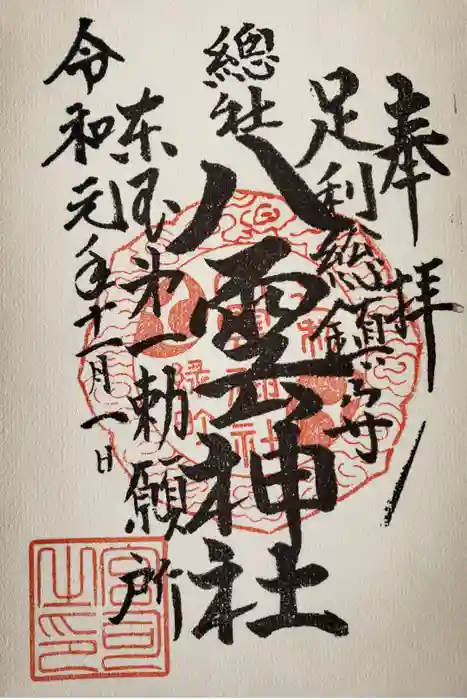 奉拝
足利総領守
總社
八雲神社
东国第一勅願所
令和元年十一月一日
宮司之印